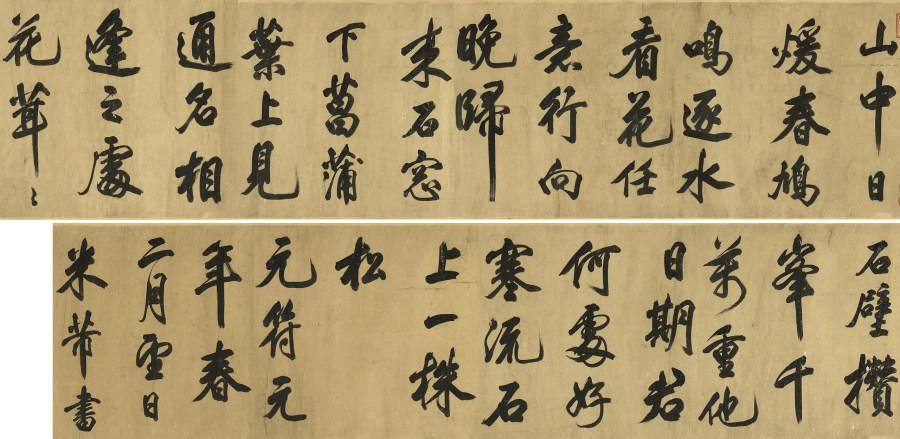 山中日
煖春鳩
鳴逐水
看花任
意行向
晚歸
來石窓
下菖蒲
葉上見
通名相
逢之處
花茸〻
石壁攢
峯千
萬重他
日期君
何處好
寒流石
上一株
松
元符元
年春
二月望日
米芾書